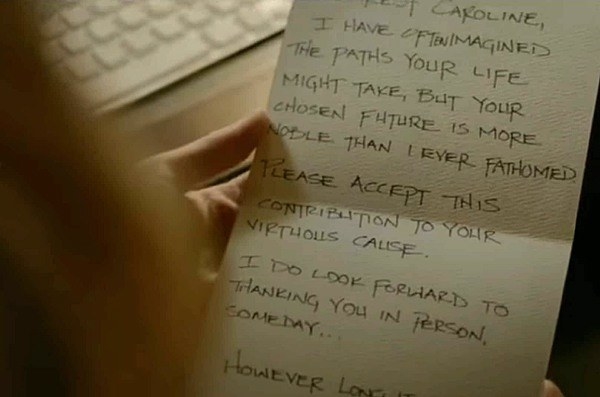 CAROLINE,
I HAVE OFTEN IMAGINED
THE PATHS YOUR LIFE
MIGHT TAKE, BUT YOUR
CHOSEN FUTURE IS MORE
NOBLE THAN I EVER FATHOMED.
PLEASE ACCEPT THIS
CONTRIBUTION TO YOUR
VIRTUOUS CAUSE.
I DO LOOK FORWARD TO
THANKING YOU IN PERSON,
SOMEDAY...
HOWEVER